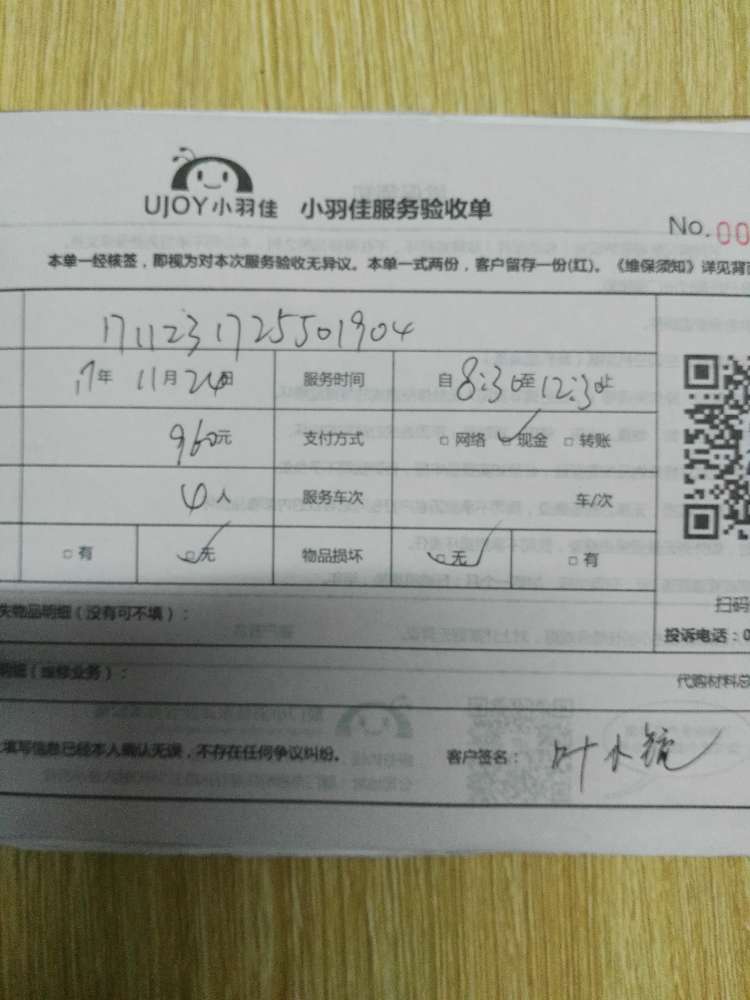 UJOY小羽佳 小羽佳服务验收单
No.00
本单一经核签，即视为对本次服务验收无异议。本单一式两份，客户留存一份(红)。《维保须知》详见背
1711231725501904
17年 11月24日 服务时间 自8:30至12:30止
960元 支付方式 □网络 ☑现金 □转账
4人 服务车次 车/次
□有 ☑无 物品损坏 ☑无 □有
扫码
失物品明细（没有可不填）：
投诉电话：0
明细（维修业务）：
代购材料总
填写信息已经本人确认无误，不存在任何争议纠纷。 客户签名：叶水